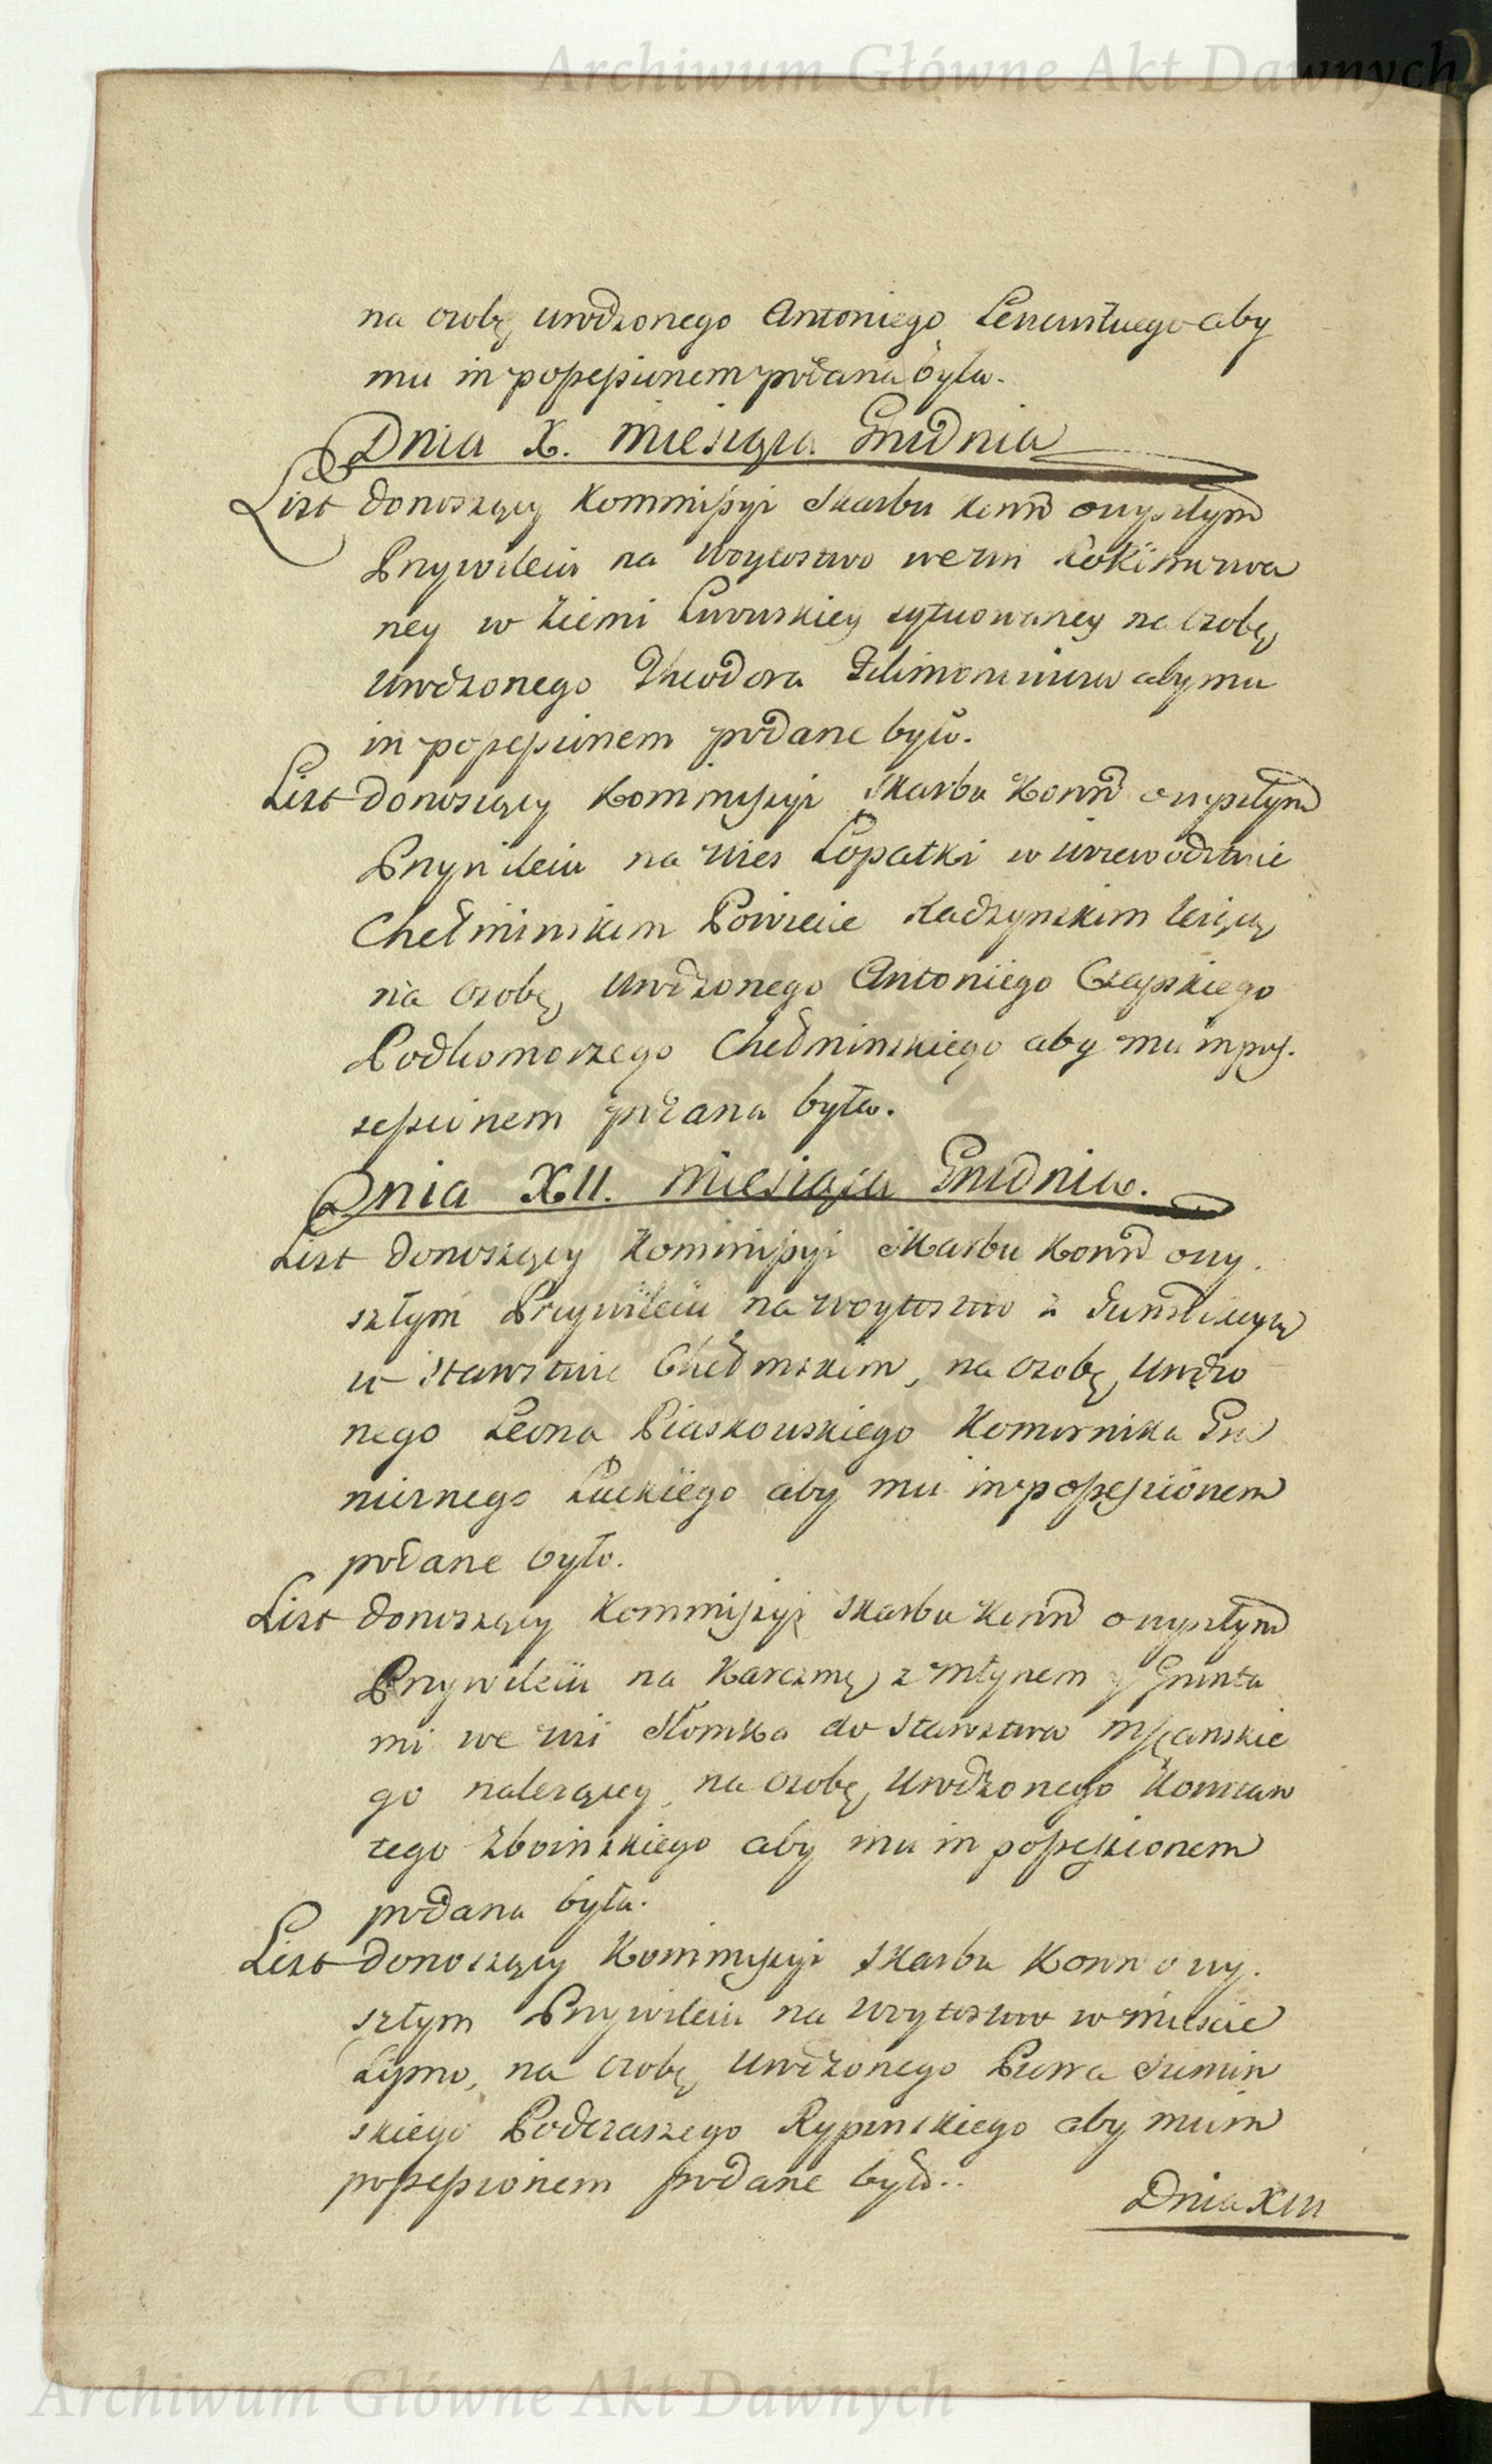 Archiwum Główne Akt Dawnych
na osobę urodzonego Antoniego aby
mu in possessionem podana była.
Dnia X. Miesiąca Grudnia
List donoszący Kommissyi Skarbu Konn o wyszłym
Przywileiu na Woytostwo we wsi
ney w Ziemi Lwowskiey sytuowaney na osobę
Urodzonego Theodora aby mu
in possessionem podane było.
List donoszący Kommissyi Skarbu Konn o wyszłym
Przywileiu na Wieś Łopatki w Woiewodztwie
Chełminskim Powiecie Radzynskim leżącą
na osobę Urodzonego Antoniego Czapskiego
Podkomorzego Chełminskiego aby mu in pos.
sessionem podana była.
Dnia XII. Miesiąca Grudnia.
List donoszący Kommissyi Skarbu Konn o wy.
szłym Przywileiu na Woytostwo z
w Starostwie Chełmskim, na osobę Urodzo
nego Leona Piaskowskiego Komornika Gra
nicznego Łuckiego aby mu in possessionem
podane było.
List donoszący Kommissyi Skarbu Konn o wyszłym
Przywileiu na Karczmę z Młynem y Grunta
mi we wsi Słomka do Starostwa
go należącey, na osobę Urodzonego Konstan
tego Zboinskiego aby mu in possessionem
podana była.
List donoszący Kommissyi Skarbu Konn o wy.
szłym Przywileiu na Woytostwo w Mieście
Lipno, na osobę Urodzonego Piotra Siemin
skiego Podczaszego Rypinskiego aby mu in
possessionem podane było..
Dnia XIII
Archiwum Główne Akt Dawnych